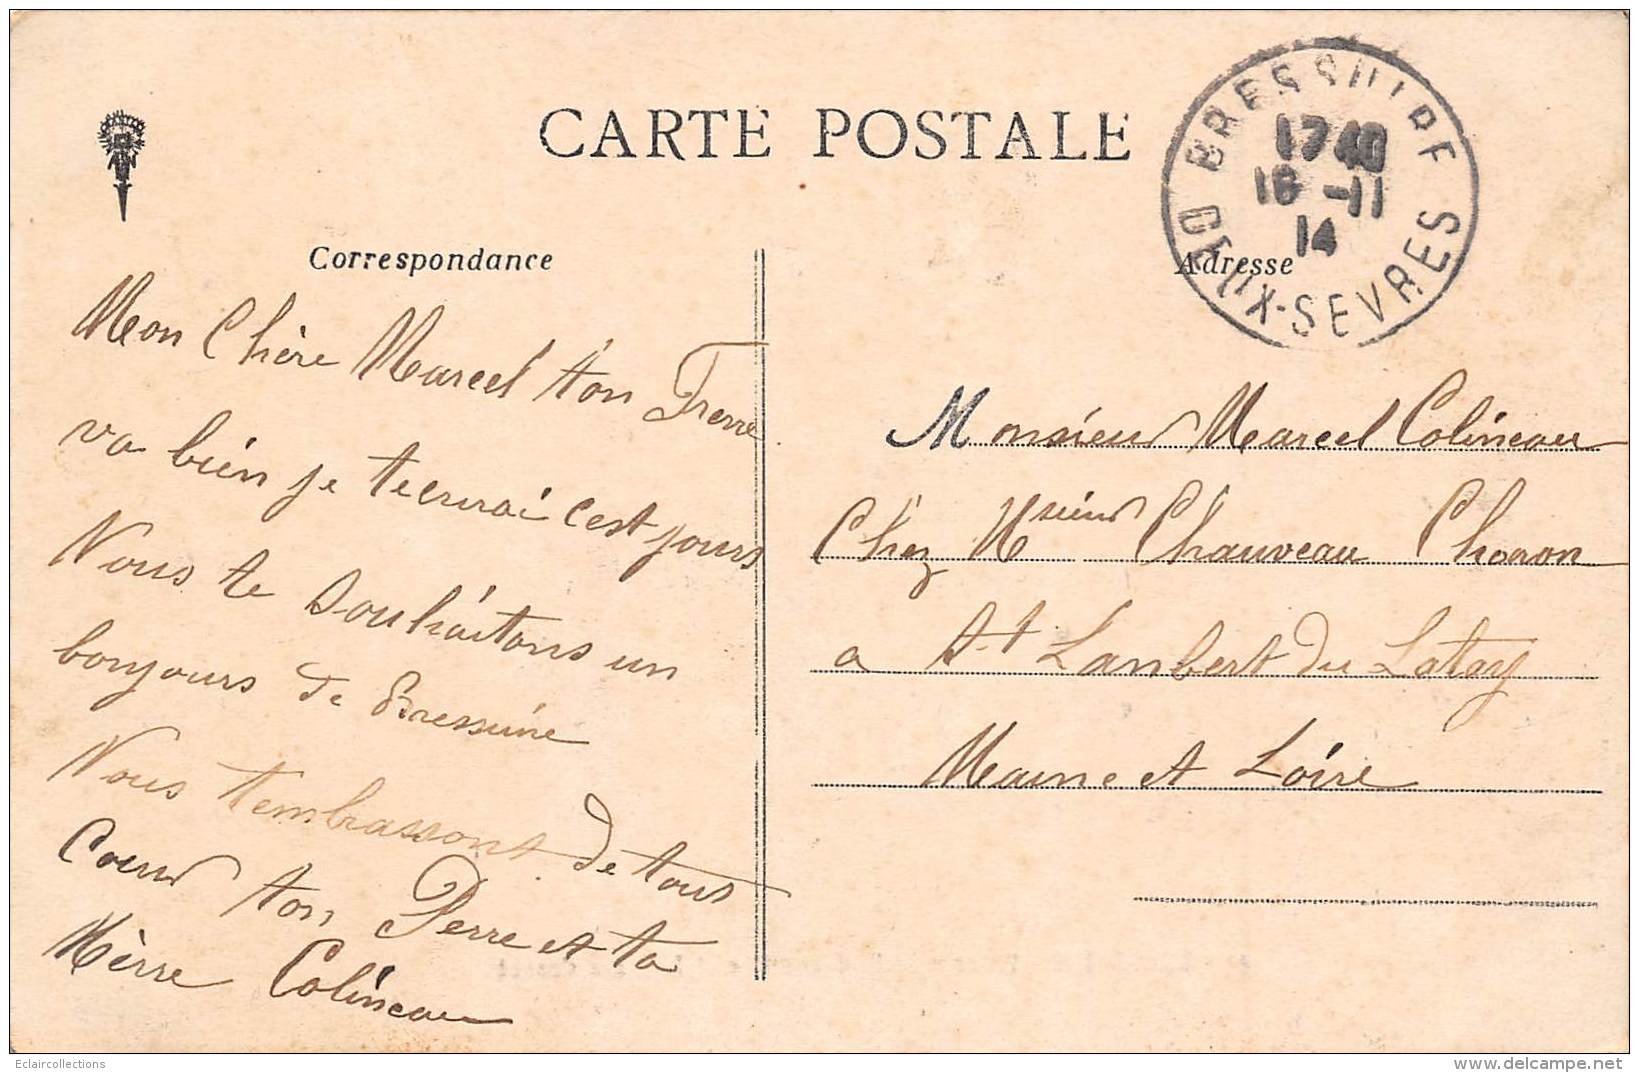 CARTE POSTALE
BRESSUIRE
1740
16 -11
14
DEUX-SEVRES
Correspondance
Adresse
Mon Chère Marcel ton Frerre
va bien je tecrirai cest jours
Nous te souhaitons un
bonjours de Bressuire
Nous tembrassont de tous
Cœur ton Perre et ta
Mèrre Colineau
Monsieur Marcel Colineau
Chez Msieur Chauveau
a St Lanbert du Latay
Maine et Loire
Eclaircollections
www.delcampe.net